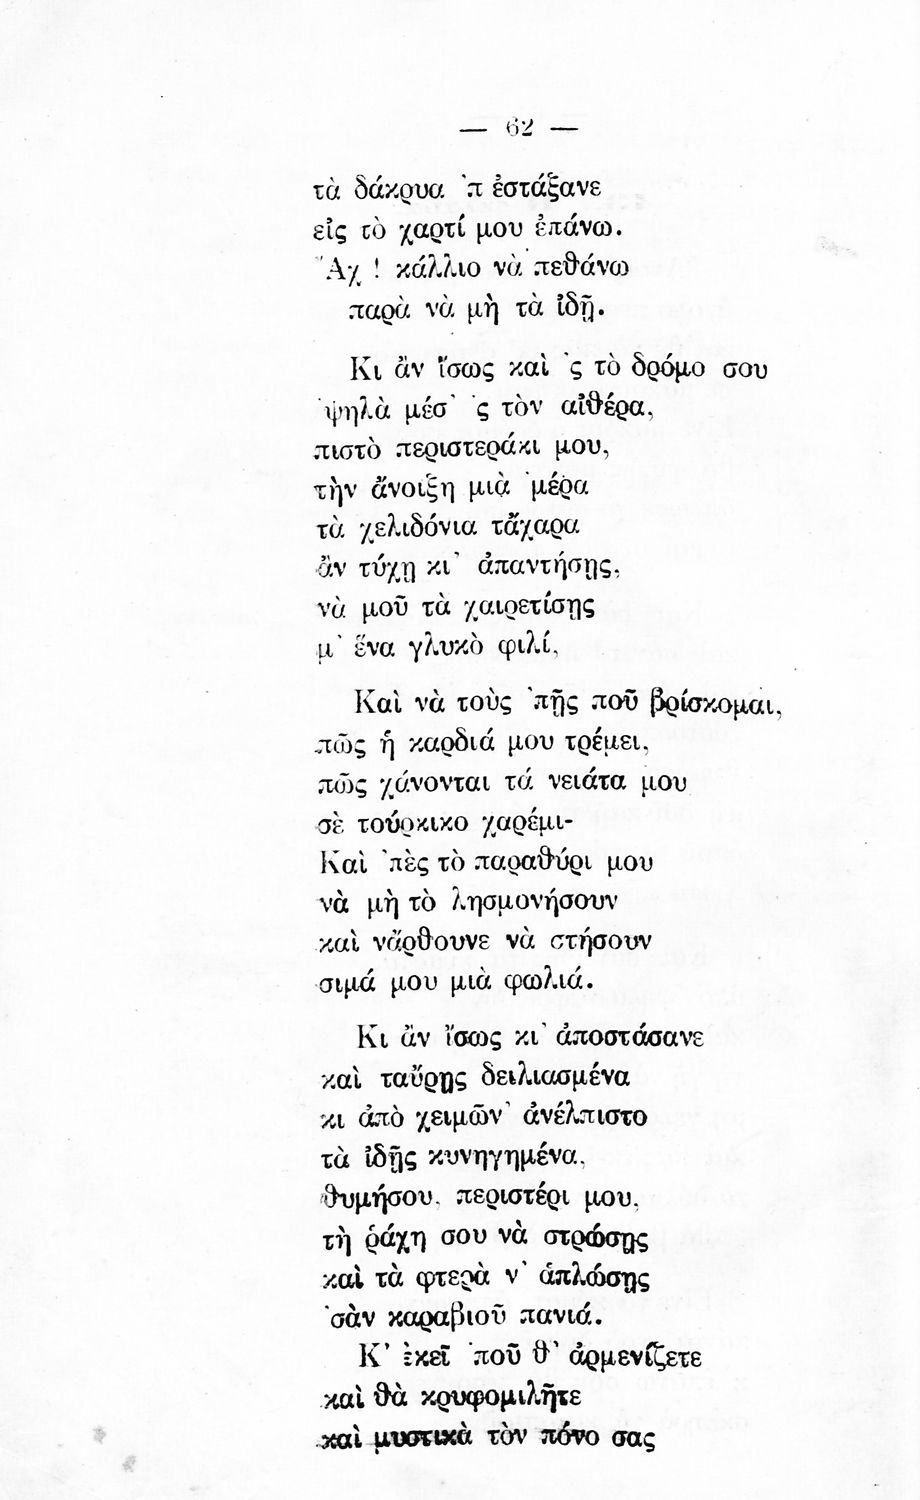 — 62 —
τὰ δάκρυα ᾿π ἐστάξανε
εἰς τὸ χαρτί μου ἐπάνω.
Ἄχ ! κάλλιο νὰ πεθάνω
παρὰ νὰ μὴ τὰ ἰδῇ.
Κι ἂν ἴσως καὶ ᾿ς τὸ δρόμο σου
᾿ψηλὰ μέσ᾿ ᾿ς τὸν αἰθέρα,
πιστὸ περιστεράκι μου,
τὴν ἄνοιξη μιὰ ᾿μέρα
τὰ χελιδόνια τἄχαρα
ἂν τύχῃ κι᾿ ἀπαντήσῃς,
νὰ μοῦ τὰ χαιρετίσῃς
μ᾿ ἕνα γλυκὸ φιλί,
Καὶ νὰ τοὺς ᾿πῇς ποῦ βρίσκομαι,
πῶς ἡ καρδιά μου τρέμει,
πῶς χάνονται τά νειάτα μου
σὲ τούρκικο χαρέμι-
Καὶ ᾿πὲς τὸ παραθύρι μου
νὰ μὴ τὸ λησμονήσουν
καὶ νἄρθουνε νὰ στήσουν
σιμά μου μιὰ φωλιά.
Κι ἂν ἴσως κι᾿ ἀποστάσανε
καὶ ταὔρῃς δειλιασμένα
κι ἀπὸ χειμῶν᾿ ἀνέλπιστο
τὰ ἰδῇς κυνηγημένα,
θυμήσου, περιστέρι μου,
τὴ ῥάχη σου νὰ στρώσῃς
καὶ τὰ φτερὰ ν᾿ ἁπλώσῃς
᾿σὰν καραβιοῦ πανιά.
Κ᾿ ἐκεῖ ᾿ποῦ θ᾿ ἀρμενίζετε
καὶ θὰ κρυφομιλῆτε
καὶ μυστικὰ τὸν πόνο σας